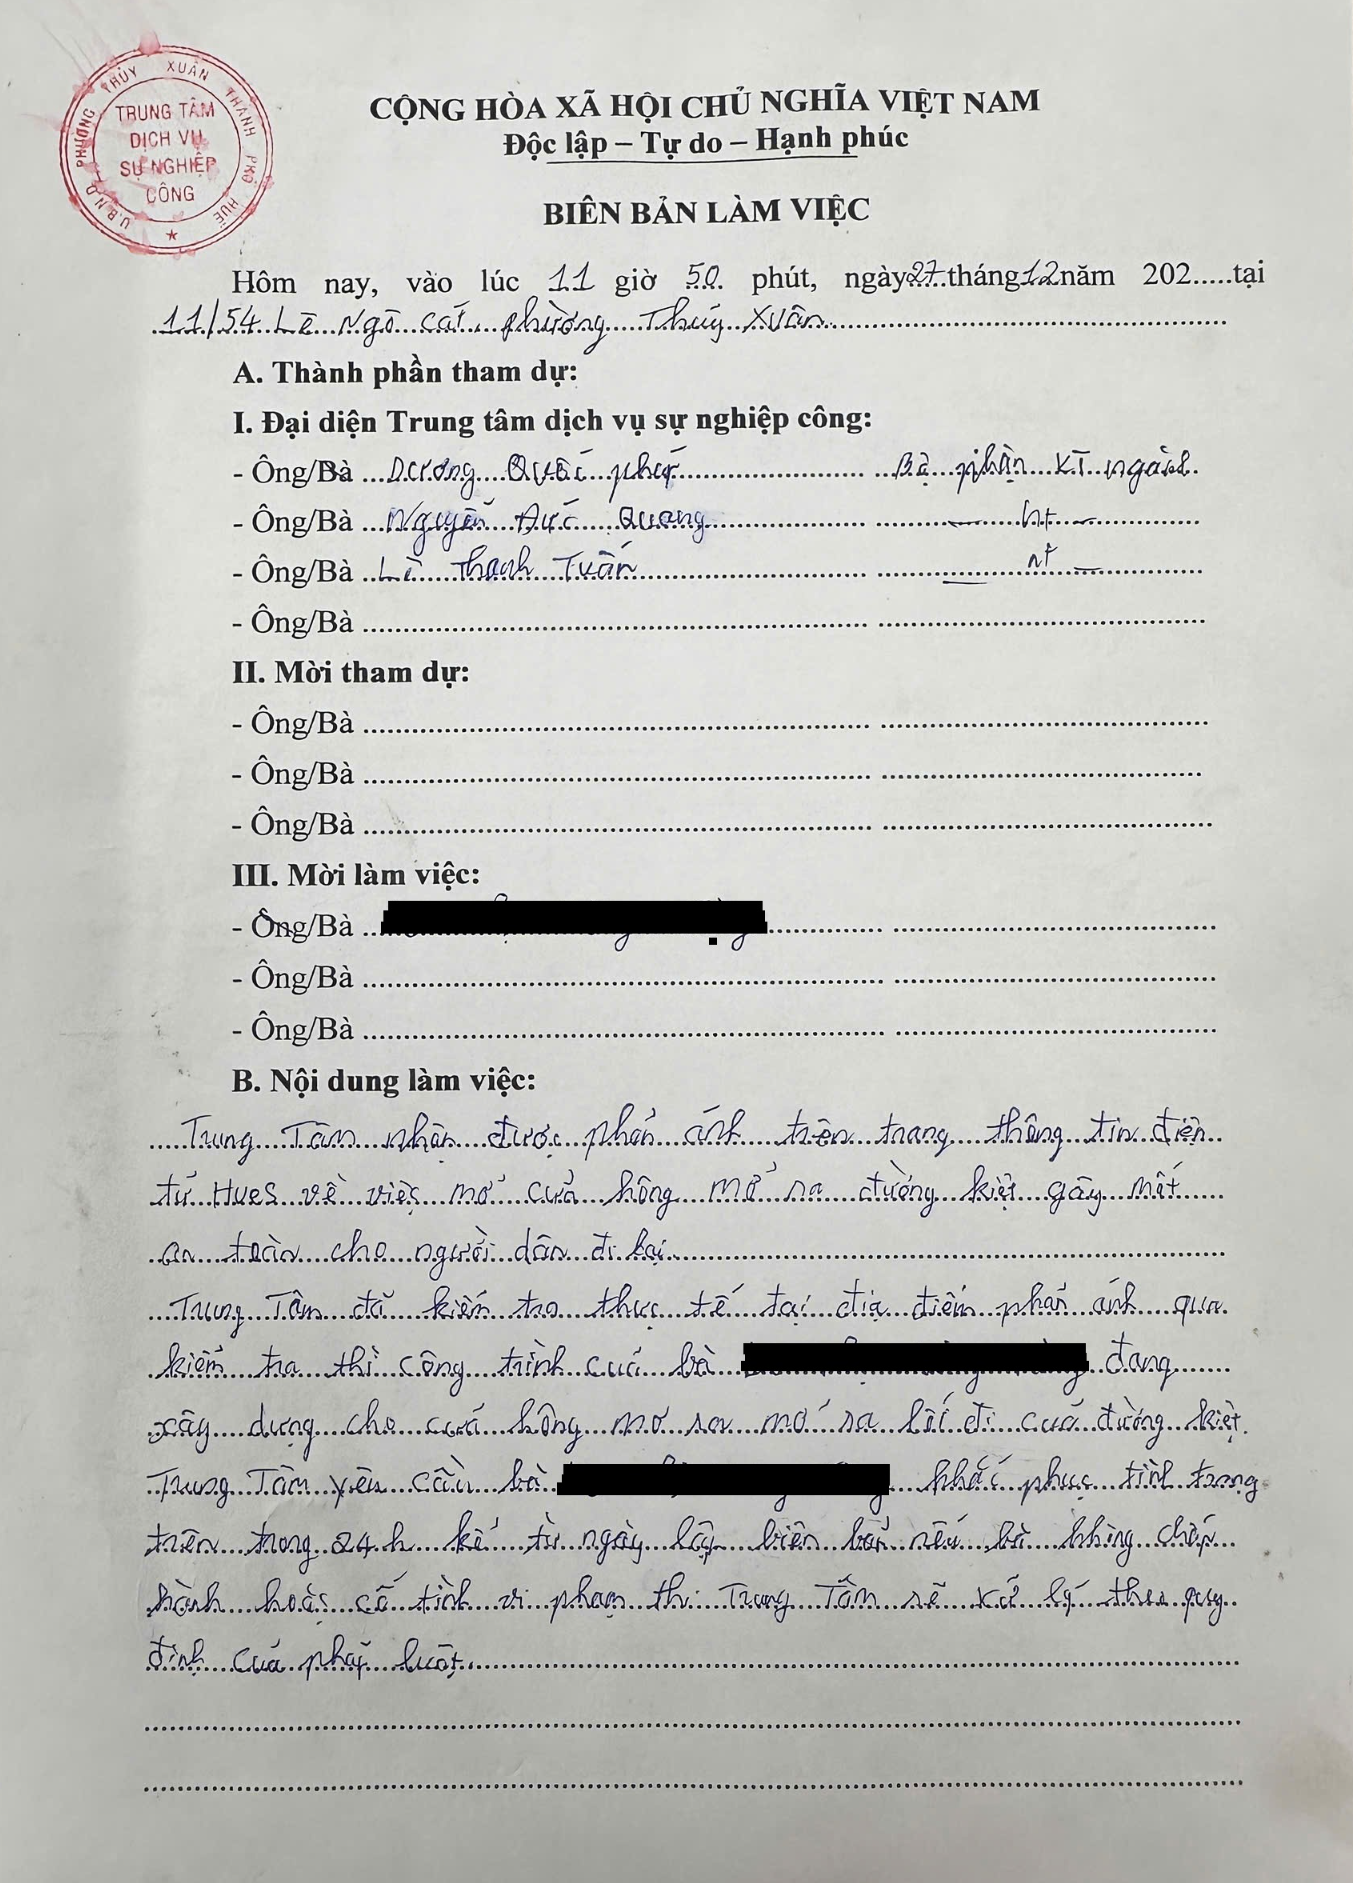 U.B.N.D PHƯỜNG THỦY XUÂN THÀNH PHỐ HUẾ
TRUNG TÂM
DỊCH VỤ
SỰ NGHIỆP
CÔNG
CỘNG HÒA XÃ HỘI CHỦ NGHĨA VIỆT NAM
Độc lập – Tự do – Hạnh phúc
BIÊN BẢN LÀM VIỆC
Hôm nay, vào lúc 11 giờ 50 phút, ngày 27 tháng 12 năm 202.....tại
11/54 Lê Ngô Cát, phường Thuỷ Xuân
A. Thành phần tham dự:
I. Đại diện Trung tâm dịch vụ sự nghiệp công:
- Ông/Bà Dương Quốc Bộ phận
- Ông/Bà Nguyễn Đức Quang nt
- Ông/Bà Lê Thanh Tuấn nt
- Ông/Bà
II. Mời tham dự:
- Ông/Bà
- Ông/Bà
- Ông/Bà
III. Mời làm việc:
- Ông/Bà
- Ông/Bà
- Ông/Bà
B. Nội dung làm việc:
Trung Tâm nhận được phản ánh trên trang thông tin điện
tử HueS về việc mở cửa hông mở ra đường kiệt gây mất
an toàn cho người dân đi lại
Trung Tâm đã kiểm tra thực tế tại địa điểm phản ánh qua
kiểm tra thì công trình của bà đang
xây dựng cho cửa hông mở ra mở ra lối đi của đường kiệt.
Trung Tâm yêu cầu bà khắc phục tình trạng
trên trong 24h kể từ ngày lập biên bản nếu bà không chấp
hành hoặc cố tình vi phạm thì Trung Tâm sẽ xử lý theo quy
định của pháp luật.